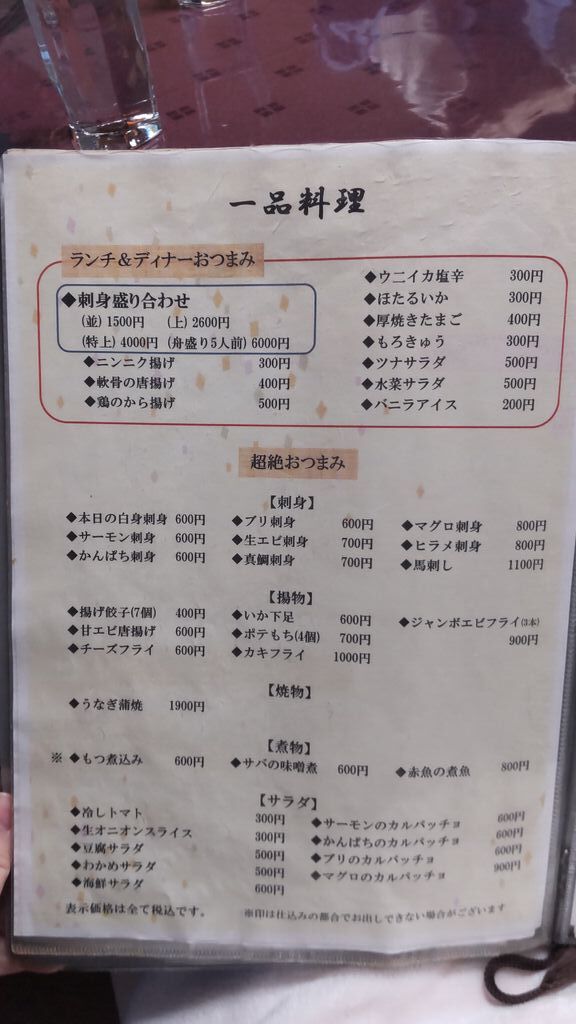 一品料理
ランチ＆ディナーおつまみ
◆刺身盛り合わせ
(並) 1500円 (上) 2600円
(特上) 4000円 (舟盛り5人前) 6000円
◆ニンニク揚げ 300円
◆軟骨の唐揚げ 400円
◆鶏のから揚げ 500円
◆ウニイカ塩辛 300円
◆ほたるいか 300円
◆厚焼きたまご 400円
◆もろきゅう 300円
◆ツナサラダ 500円
◆水菜サラダ 500円
◆バニラアイス 200円
超絶おつまみ
【刺身】
◆本日の白身刺身 600円 ◆ブリ刺身 600円 ◆マグロ刺身 800円
◆サーモン刺身 600円 ◆生エビ刺身 700円 ◆ヒラメ刺身 800円
◆かんぱち刺身 600円 ◆真鯛刺身 700円 ◆馬刺し 1100円
【揚物】
◆揚げ餃子(7個) 400円 ◆いか下足 600円 ◆ジャンボエビフライ(3本)
◆甘エビ唐揚げ 600円 ◆ポテもち(4個) 700円 900円
◆チーズフライ 600円 ◆カキフライ 1000円
【焼物】
◆うなぎ蒲焼 1900円
【煮物】
※ ◆もつ煮込み 600円 ◆サバの味噌煮 600円 ◆赤魚の煮魚 800円
【サラダ】
◆冷しトマト 300円 ◆サーモンのカルパッチョ 600円
◆生オニオンスライス 300円 ◆かんぱちのカルパッチョ 600円
◆豆腐サラダ 500円 ◆ブリのカルパッチョ 600円
◆わかめサラダ 500円 ◆マグロのカルパッチョ 900円
◆海鮮サラダ 600円
表示価格は全て税込です。 ※印は仕込みの都合でお出しできない場合がございます